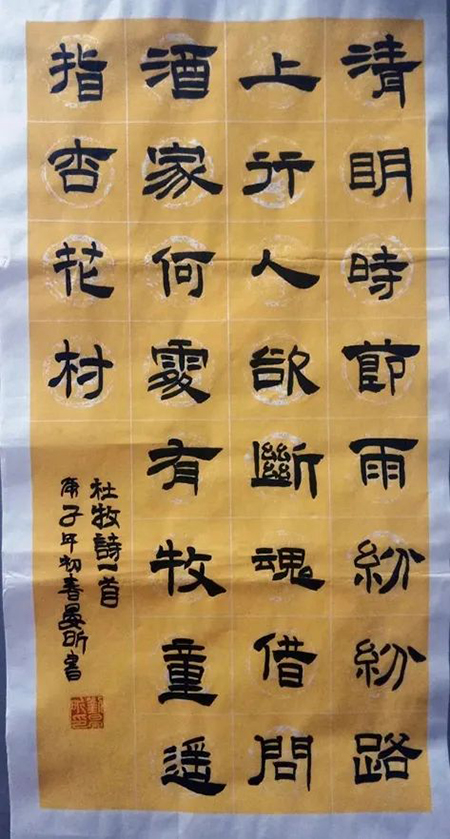 清明時節雨紛紛路
上行人欲斷魂借問
酒家何處有牧童遥
指杏花村
杜牧詩一首
庚子年初春晏昕書